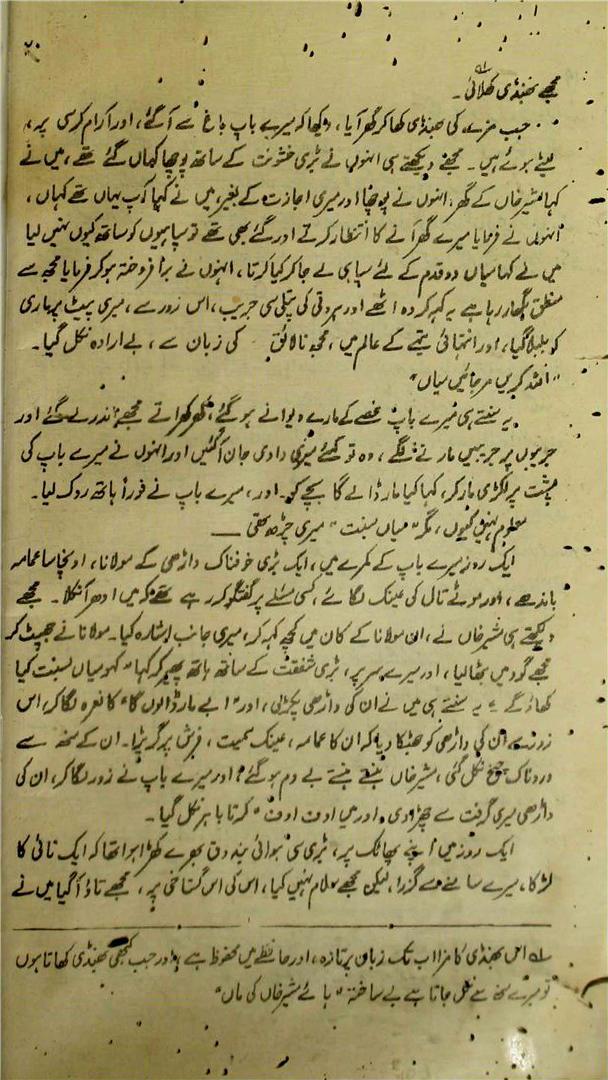 ۲۰
مجھے بھنڈی کھلائی۔
جب مزے کی بھنڈی کھا کر گھر آیا، دیکھا کہ میرے باپ باغ سے آ گئے، اور آرام کرسی پر
لیٹے ہوئے ہیں۔ مجھے دیکھتے ہی انہوں نے بڑی خشونت کے ساتھ پوچھا کہاں گئے تھے، میں نے
کہا بشیر خاں کے گھر، انہوں نے پوچھا اور میری اجازت کے بغیر، میں نے کہا آپ یہاں تھے کہاں،
انہوں نے فرمایا میرے گھر آنے کا انتظار کرتے اور گئے بھی تھے تو سپاہیوں کو ساتھ کیوں نہیں لیا
میں نے کہا میاں دو قدم کے لئے سپاہی لے جا کر کیا کرتا، انہوں نے برافروختہ ہو کر فرمایا مجھ سے
منطق بگھار رہا ہے یہ کہہ کر وہ اٹھے اور بروتی کی پتلی سی جریب، اس زور سے، میری پیٹ پر ماری
کو بلبلا گیا، اور انتہائی بتے کے عالم میں، مجھ نالائق کی زبان سے، بے ارادہ نکل گیا۔
"اللہ کریں مر جائیں میاں"
یہ سنتے ہی میرے باپ غصے کے مارے دیوانے ہو گئے، مجھے اندر لے گئے اور
جریبوں پر جریبیں مارنے لگے، وہ تو کہئے میری دادی جان آ گئیں اور انہوں نے میرے باپ کی
پشت پر لکڑی مار کر، کہا کیا مار ڈالے گا بچے کو۔ اور، میرے باپ نے فوراً ہاتھ روک لیا۔
معلوم نہیں کیوں، مگر "میاں بسنت" میری چڑھ تھی۔
ایک روز میرے باپ کے کمرے میں، ایک بڑی خوفناک داڑھی کے مولانا، اونچا سا عمامہ
باندھے، اور موٹے تال کی عینک لگائے، کسی مسئلے پر گفتگو کر رہے تھے کہ میں ادھر آ نکلا۔ مجھے
دیکھتے ہی بشیر خاں نے، ان مولانا کے کان میں کچھ کہہ کر، میری جانب اشارہ کیا۔ مولانا نے جھپٹ کر
مجھے گود میں بٹھا لیا، اور میرے سر پر، بڑی شفقت کے ساتھ ہاتھ پھیر کر کہا "کہو میاں بسنت کیا
کھاؤ گے" یہ سنتے ہی میں نے ان کی داڑھی پکڑلی، اور "ابے مار ڈالوں گا" کا نعرہ لگا کر، اس
زور سے، ان کی داڑھی کو جھٹکا دیا کہ ان کا عمامہ، عینک سمیت، فرش پر گر پڑا۔ ان کے منھ سے
دردناک چیخ نکل گئی، بشیر خاں ہنستے ہنستے بے دم ہو گئے، اور میرے باپ نے زور لگا کر، ان کی
داڑھی میری گرفت سے چھڑا دی، اور میں اوت اوت کرتا باہر نکل گیا۔
ایک روز میں اپنے پھاٹک پر، بڑی سی ہوائی بندوق بھرے کھڑا ہوا تھا کہ ایک نائی کا
لڑکا، میرے سامنے سے گزرا، لیکن مجھے سلام نہیں کیا، اس کی اس گستاخی پر، مجھے تاؤ آ گیا میں نے
؎ اس بھنڈی کا مزا اب تک زبان پر تازہ، اور حافظے میں محفوظ ہے، اور جب کبھی بھنڈی کھاتا ہوں
تو میرے منھ سے نکل جاتا ہے بے ساختہ "ہائے بشیر خاں کی ماں"